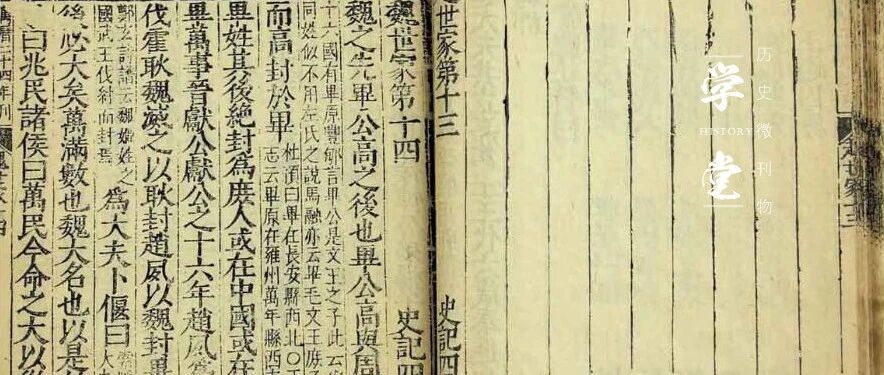 历史微刊物
学堂
HISTORY
世家第十三 史記四
魏世家第十四 史記四
魏之先畢公高之後也畢公高與周
十六國有畢原豐郇言畢公是文王之子此云
同姓似不用左氏之說馬融亦云畢毛文王庶
而高封於畢 杜預曰畢在長安縣西北〇
志云畢原在雍州萬年縣西
畢姓其後絕封為庶人或在中國或在
畢萬事晉獻公獻公之十六年趙夙為
伐霍耿魏滅之以耿封趙夙以魏封畢
鄭玄詩譜云魏姬姓之
國武王伐紂而封焉 為大夫卜偃曰
後必大矣萬滿數也魏大名也以是
曰兆民諸侯曰萬民今命之大以
二十四年刊